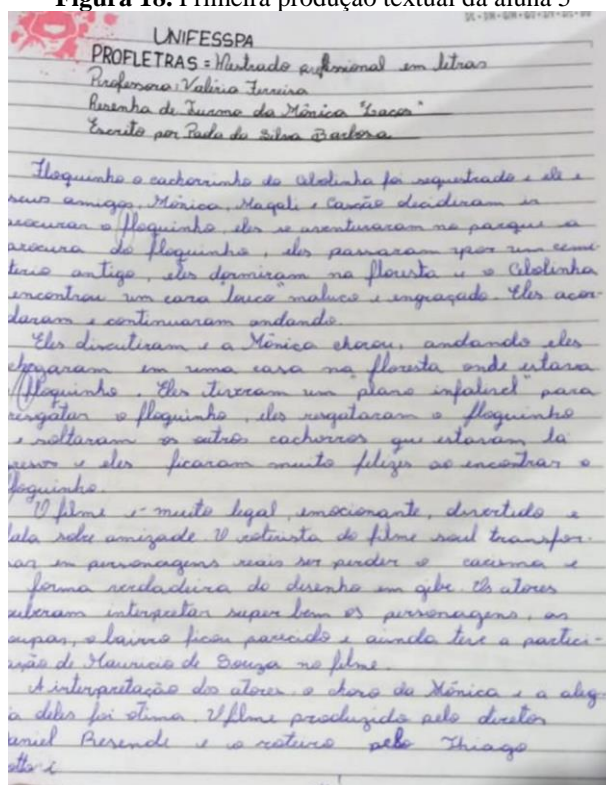 Figura 18. Primeira produção textual da aluna 5
UNIFESSPA
PROFLETRAS = Mestrado profissional em letras
Professora: Valéria Ferreira
Resenha de Turma da Mônica "Laços"
Escrito por da Silva Barbosa
Floquinho o cachorrinho do cebolinha foi sequestrado e ele e
seus amigos, Mônica, Magali e Cascão decidiram ir
procurar o floquinho eles se aventuraram no parque a
procura do floquinho, eles passaram por um cemi-
tério antigo, eles dormiram na floresta e o Cebolinha
encontrou um cara louco maluco e engraçado. Eles acor-
daram e continuaram andando.
Eles discutiram e a Mônica chorou, andando eles
chegaram em uma casa na floresta onde estava
floquinho. Eles tiveram um "plano infalivel" para
resgatar o floquinho, eles resgataram o floquinho
e soltaram os outros cachorros que estavam la
presos e eles ficaram muito felizes ao encontrar o
floquinho.
O filme é muito legal, emocionante, divertido e
fala sobre amizade. O roterista do filme soul transfor-
mar em personagens reais ser perder o e
forma verdadeira do desenho em gibe. Os atores
suberam interpretar super bem os personagens, as
roupas, o bairro ficou parecido e ainda teve a partici-
pação de Mauricio de Souza no filme.
A interpretação dos atores o choro da Mônica e a aleg
a deles foi otima. O filme produzido pelo diretor
aniel Resende e o roteiro pelo Thiago